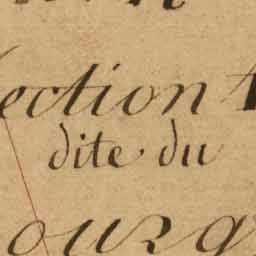 ection A
dite du
ourg